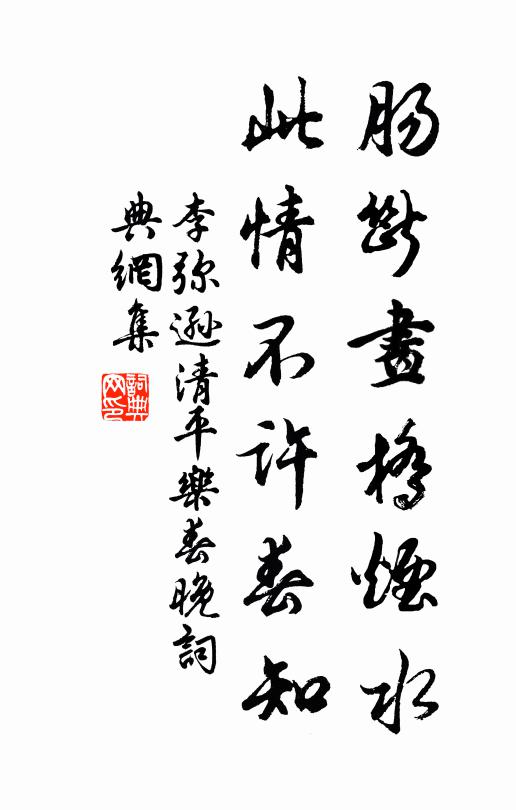 腸斷畫橋煙水
此情不許春知
李弥遜清平樂春晚詞
典網集
詞典网印